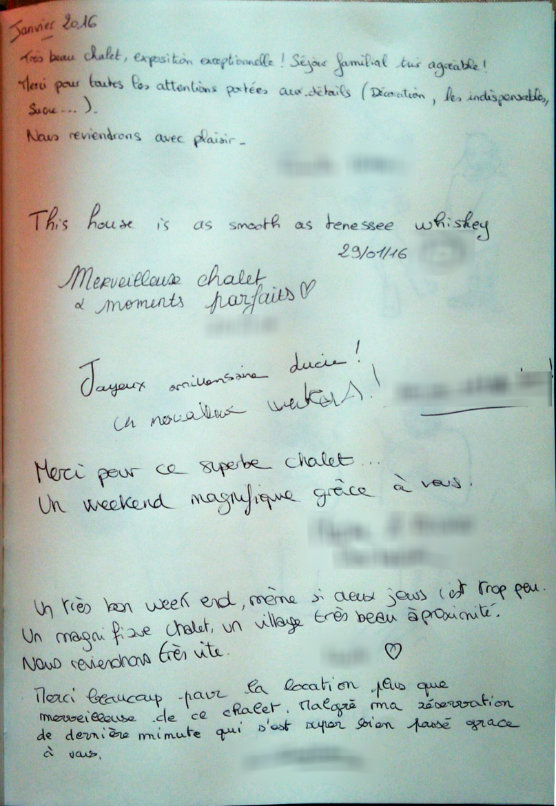 Janvier 2016
Très beau chalet, exposition exceptionnelle ! Séjour familial très agréable !
Merci pour toutes les attentions portées aux détails (Décoration, les indispensables,
Sucre ... ).
Nous reviendrons avec plaisir -
This house is as smooth as tenessee whiskey
29/01/16
Merveilleuse chalet
& moments parfaits ♡
Joyeux anniversaire Lucie !
un merveilleux weekend !
Merci pour ce superbe chalet ...
Un weekend magnifique grâce à vous.
Un très bon week end, même si deux jours c'est trop peu.
Un magnifique chalet, un village très beau à proximité.
Nous reviendrons très vite.
♡
Merci beaucoup pour la location plus que
merveilleuse de ce chalet. Malgré ma réservation
de dernière minute qui s'est super bien passé grace
à vous.